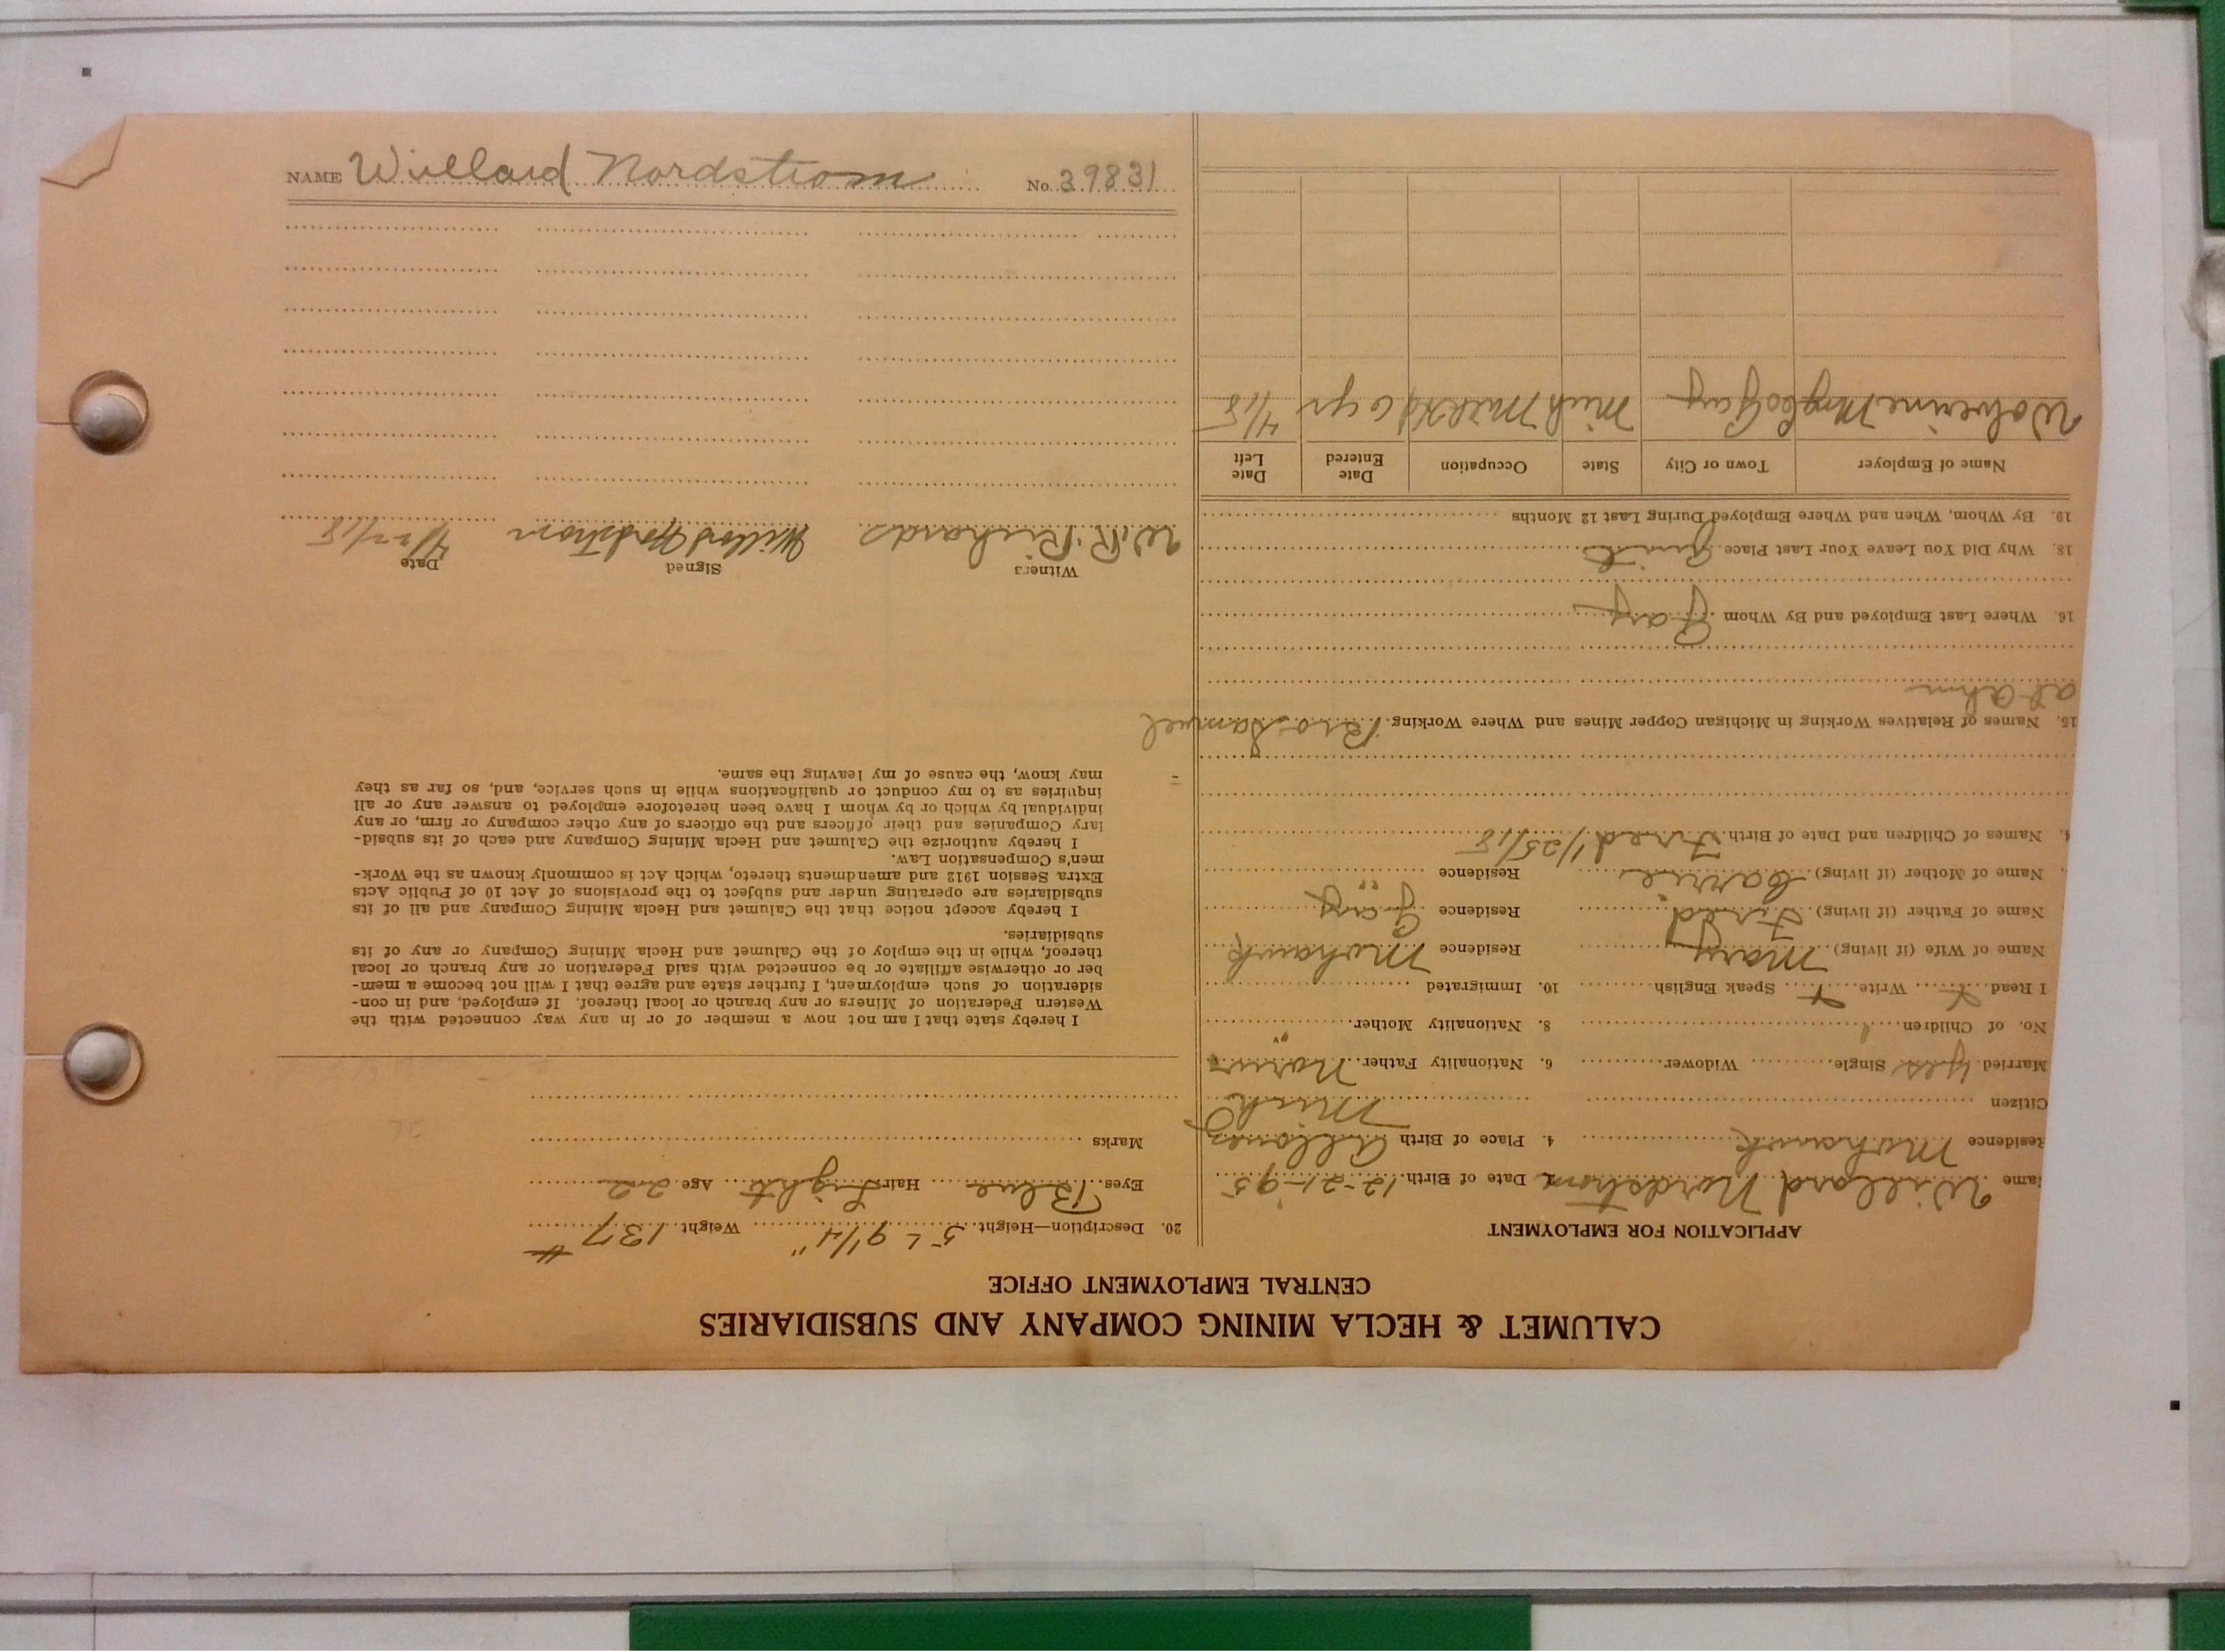 CALUMET & HECLA MINING COMPANY AND SUBSIDIARIES
CENTRAL EMPLOYMENT OFFICE
APPLICATION FOR EMPLOYMENT
ame Willard Nordstrom 2. Date of Birth 12-21-95
Residence Mohawk 4. Place of Birth Allouez
Citizen Mich
Married Yes Single Widower 6. Nationality Father
No. of Children 1 8. Nationality Mother "
I Read x Write x Speak English 10. Immigrated
Name of Wife (if living) Mary Residence Mohawk
Name of Father (if living) Fred Residence Gay
Name of Mother (if living) Carrie Residence "
4. Names of Children and Date of Birth Fred 1/25/18
15. Names of Relatives Working in Michigan Copper Mines and Where Working Bro Samuel
at Ahm
16. Where Last Employed and By Whom Gay
18. Why Did You Leave Your Last Place Quit
19. By Whom, When and Where Employed During Last 12 Months
Name of Employer Town or City State Occupation Date Entered Date Left
Wolverine Mng Co Gay Mich 6 yr 4/18
20. Description—Height 5' 9 1/4" Weight 137 #
Eyes Blue Hair Light Age 22
Marks
I hereby state that I am not now a member of or in any way connected with the
Western Federation of Miners or any branch or local thereof. If employed, and in con-
sideration of such employment, I further state and agree that I will not become a mem-
ber or otherwise affiliate or be connected with said Federation or any branch or local
thereof, while in the employ of the Calumet and Hecla Mining Company or any of its
subsidiaries.
I hereby accept notice that the Calumet and Hecla Mining Company and all of its
subsidiaries are operating under and subject to the provisions of Act 10 of Public Acts
Extra Session 1912 and amendments thereto, which Act is commonly known as the Work-
men's Compensation Law.
I hereby authorize the Calumet and Hecla Mining Company and each of its subsid-
iary Companies and their officers and the officers of any other company or firm, or any
individual by which or by whom I have been heretofore employed to answer any or all
inquiries as to my conduct or qualifications while in such service, and, so far as they
may know, the cause of my leaving the same.
Witness Signed Date
W.R. Richards Willard Nordstrom 4/22/18
NAME Willard Nordstrom No. 39831